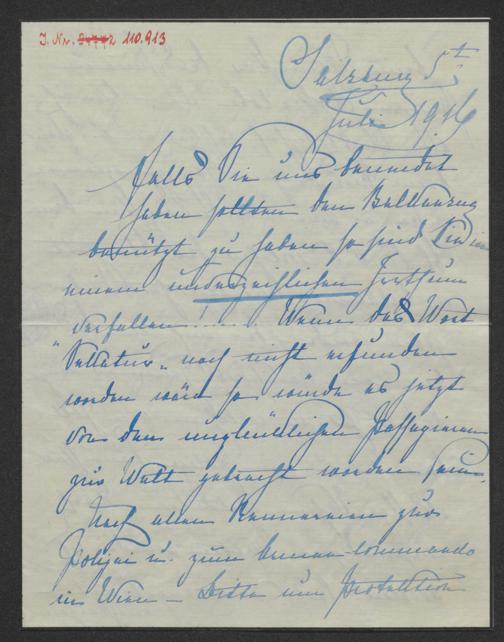 I. Nr. 110.913
Salzburg 5t
Juli 1916
Falls Sie uns beneidet
haben sollten den Balkanzug
benützt zu haben so sind Sie in
einem unverzeihlichen Irrthum
verfallen! . . . Wenn das Wort
"Sekatur" noch nicht erfunden
worden wäre so würde es jetzt
von den unglücklichen Passagieren
zur Welt gebracht worden sein.
Nach allen Rennereien zur
Polizei u. zum commando
in Wien – Bitte um Protektion